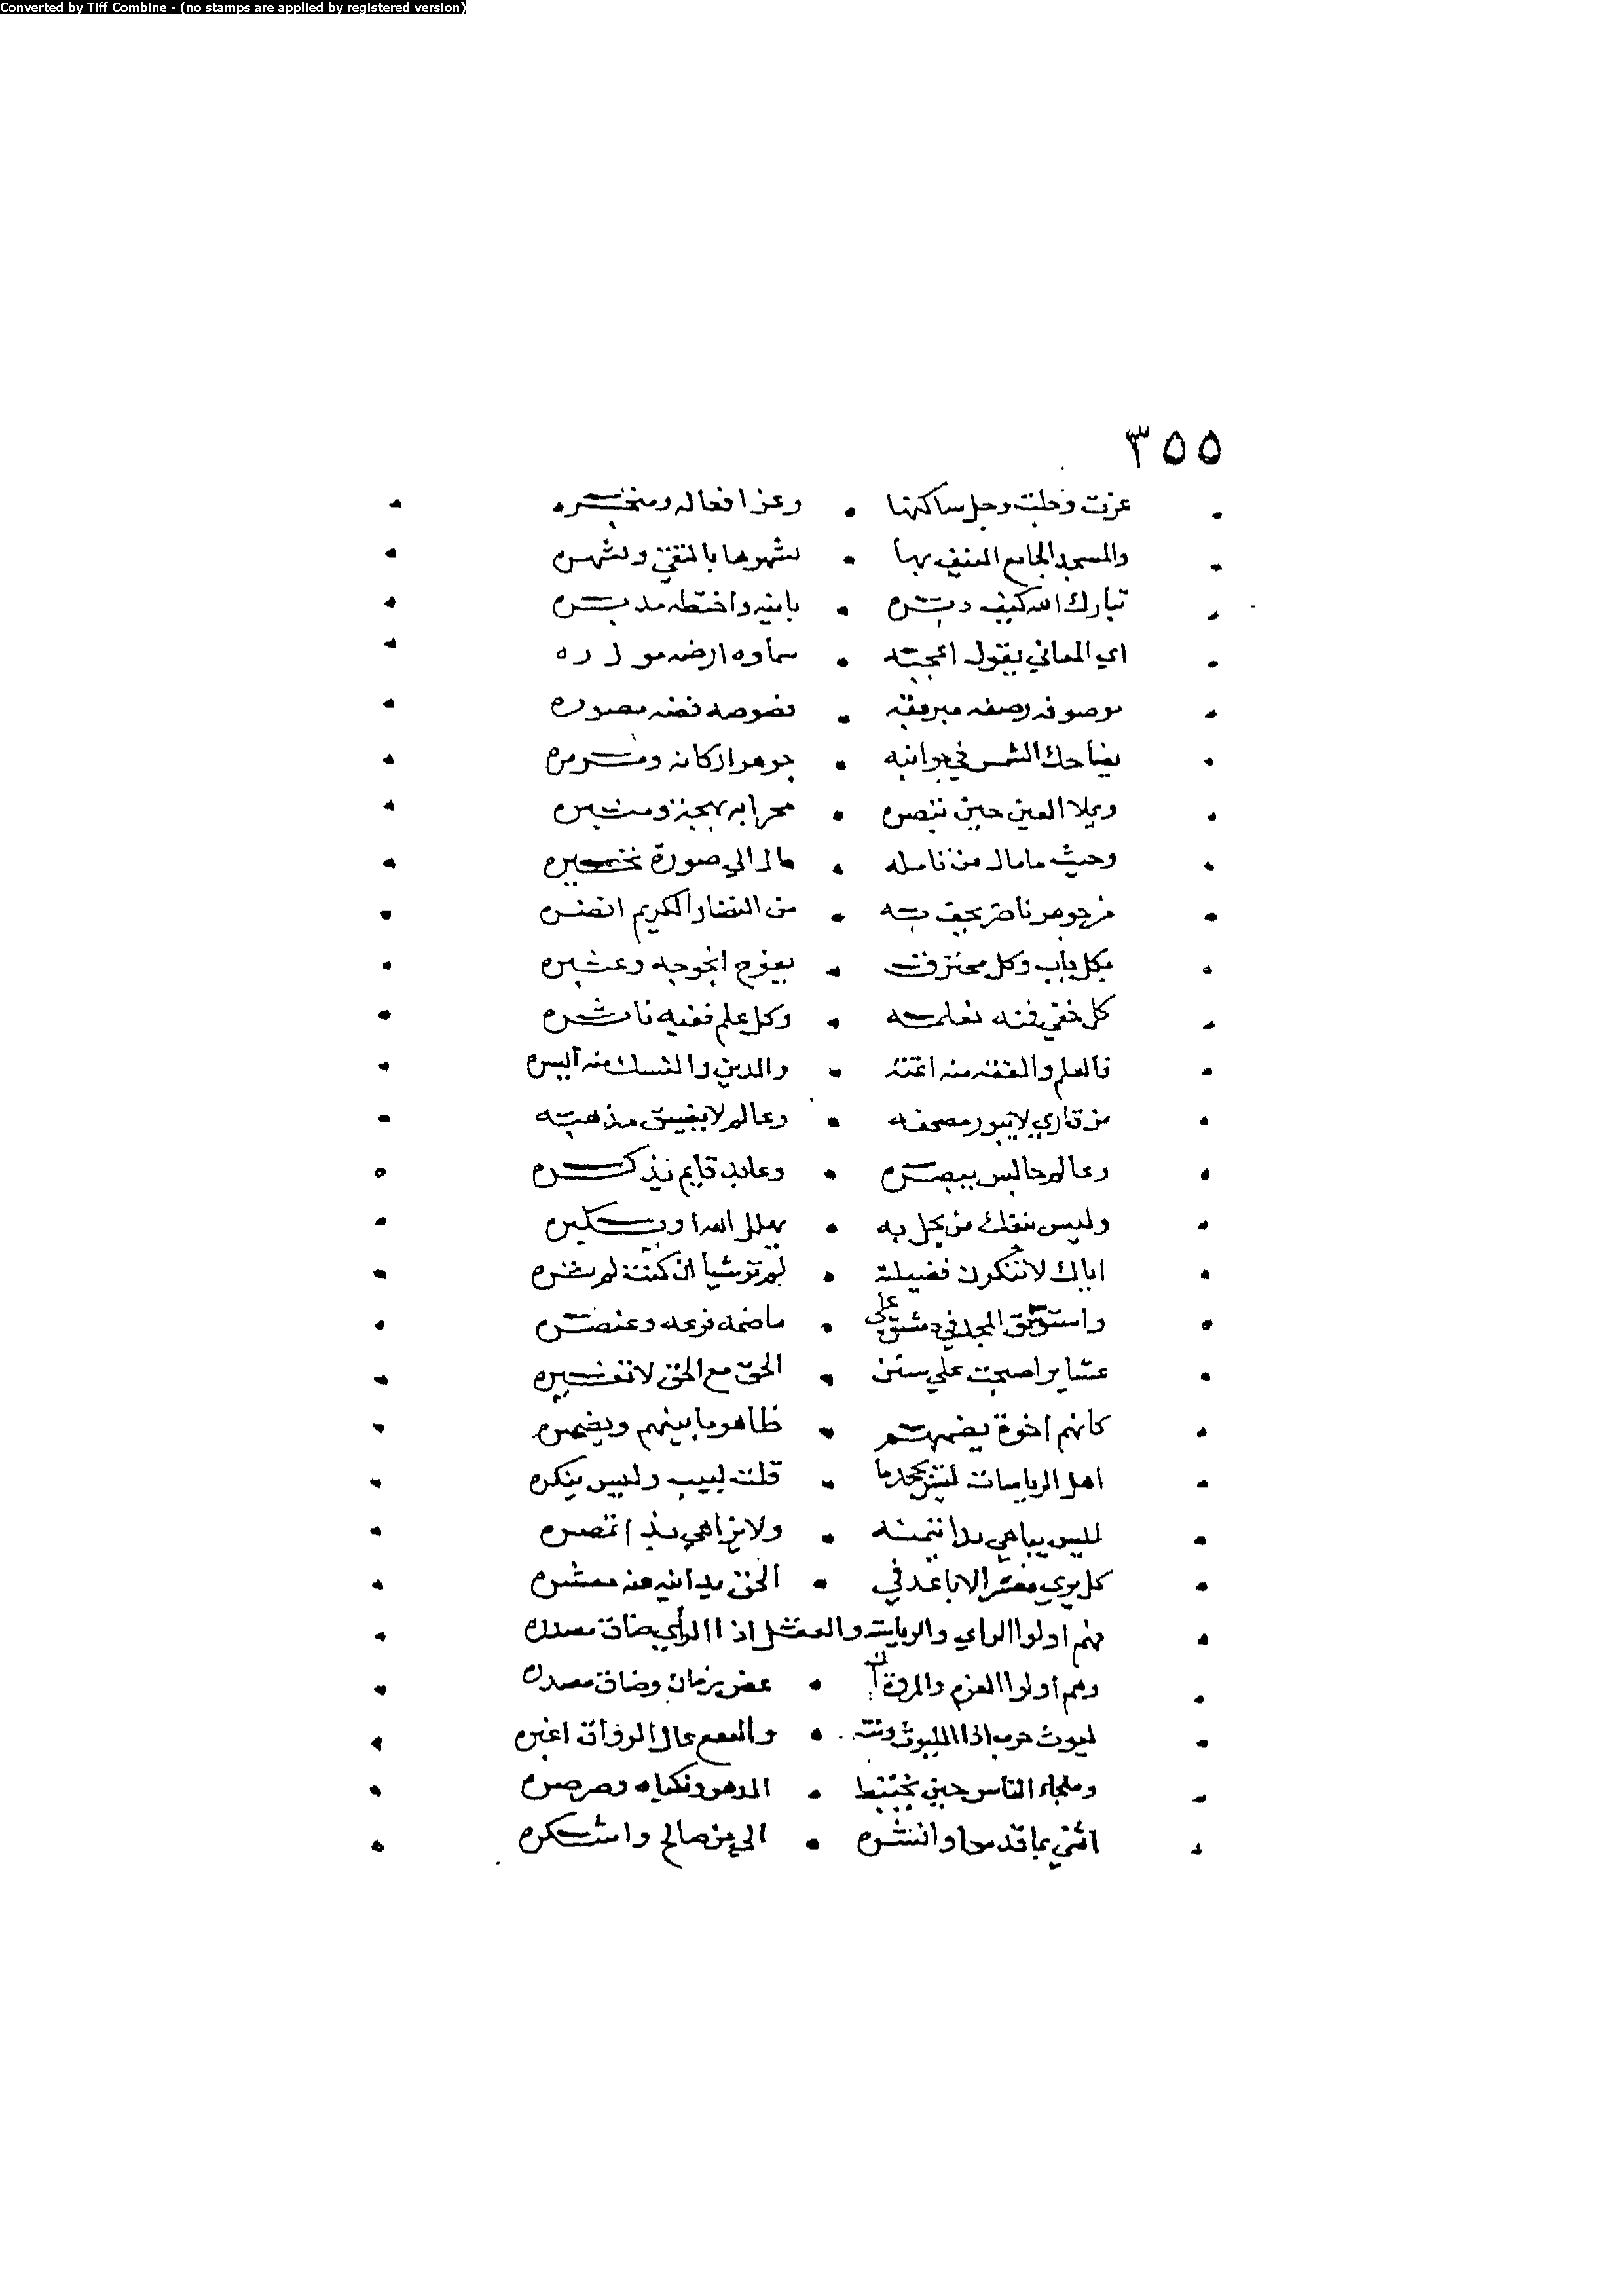 Converted by Tiff Combine - (no stamps are applied by registered version)
٣٥٥
عزت وجلت وجل ساكنها • وعز افعاله ومتجره
والمسجد الجامع المنيف بها • يشهرها بالتقي ويشهره
تبارك الله كيف دبره • بانيه واختطه مدبره
اي المعاني يقول اعجبته • سماوه ارضه
موصوفه رصفه مبرقه • فصوصه فضه مصوره
يضاحك الشمس في جوانبه • جوهر اركانه ومرمره
ويملا العين حين تبصره • محرابه بهجة ومنبره
وحيث ما مال من تامله • مال الي صورة تحيره
من جوهر ناضر يحف به • من النضار الكريم انضره
بكل باب وكل مخترق • يفوح
كل خفي فيه تعلمه • وكل علم ففيه ناشره
فالعلم والفقه منه اعنته • والدين والنسك منه ايسره
من قاري لا يبور مصحفه • وعالم لا يضيق مذهبه
وعالم جالس يبصره • وعابد قايم يذكره
وليس ينفك من يحل به • يهلل الله او يكبره
اياك لا تنكرن فضيلة • لم تر شيا ان كنت لم تره
واستوثق المجد في دمشق على • ما ضمه فرعه وعنصره
عشاير اصبحت علي سنن • الحق مع الحق لا تغيره
كانهم اخوة يضمهم • ظاهر ما بينهم ويضمره
اهل الرياسات ليس يجحد ما • قلت لبيب وليس ينكره
ليس يباهي بدا تيمنه • ولا يزاهي بذا تمصره
كل يري معشر الاباعد في • الحق يدانيه منه معشره
هم اولوا الراي والرياسة والعقل اذا الراي ضاق مصدره
وهم اولوا العزم والمروة ان • عض زمان وضاق مصدره
ليوث حرب اذا الليوث ونت • والنقع عال الرواق اغبره
وملجاء الناس حين يختبط • الدهر ونكباه وصرصره
اثني بما قدموا وانشره • الي من صالح واشكره